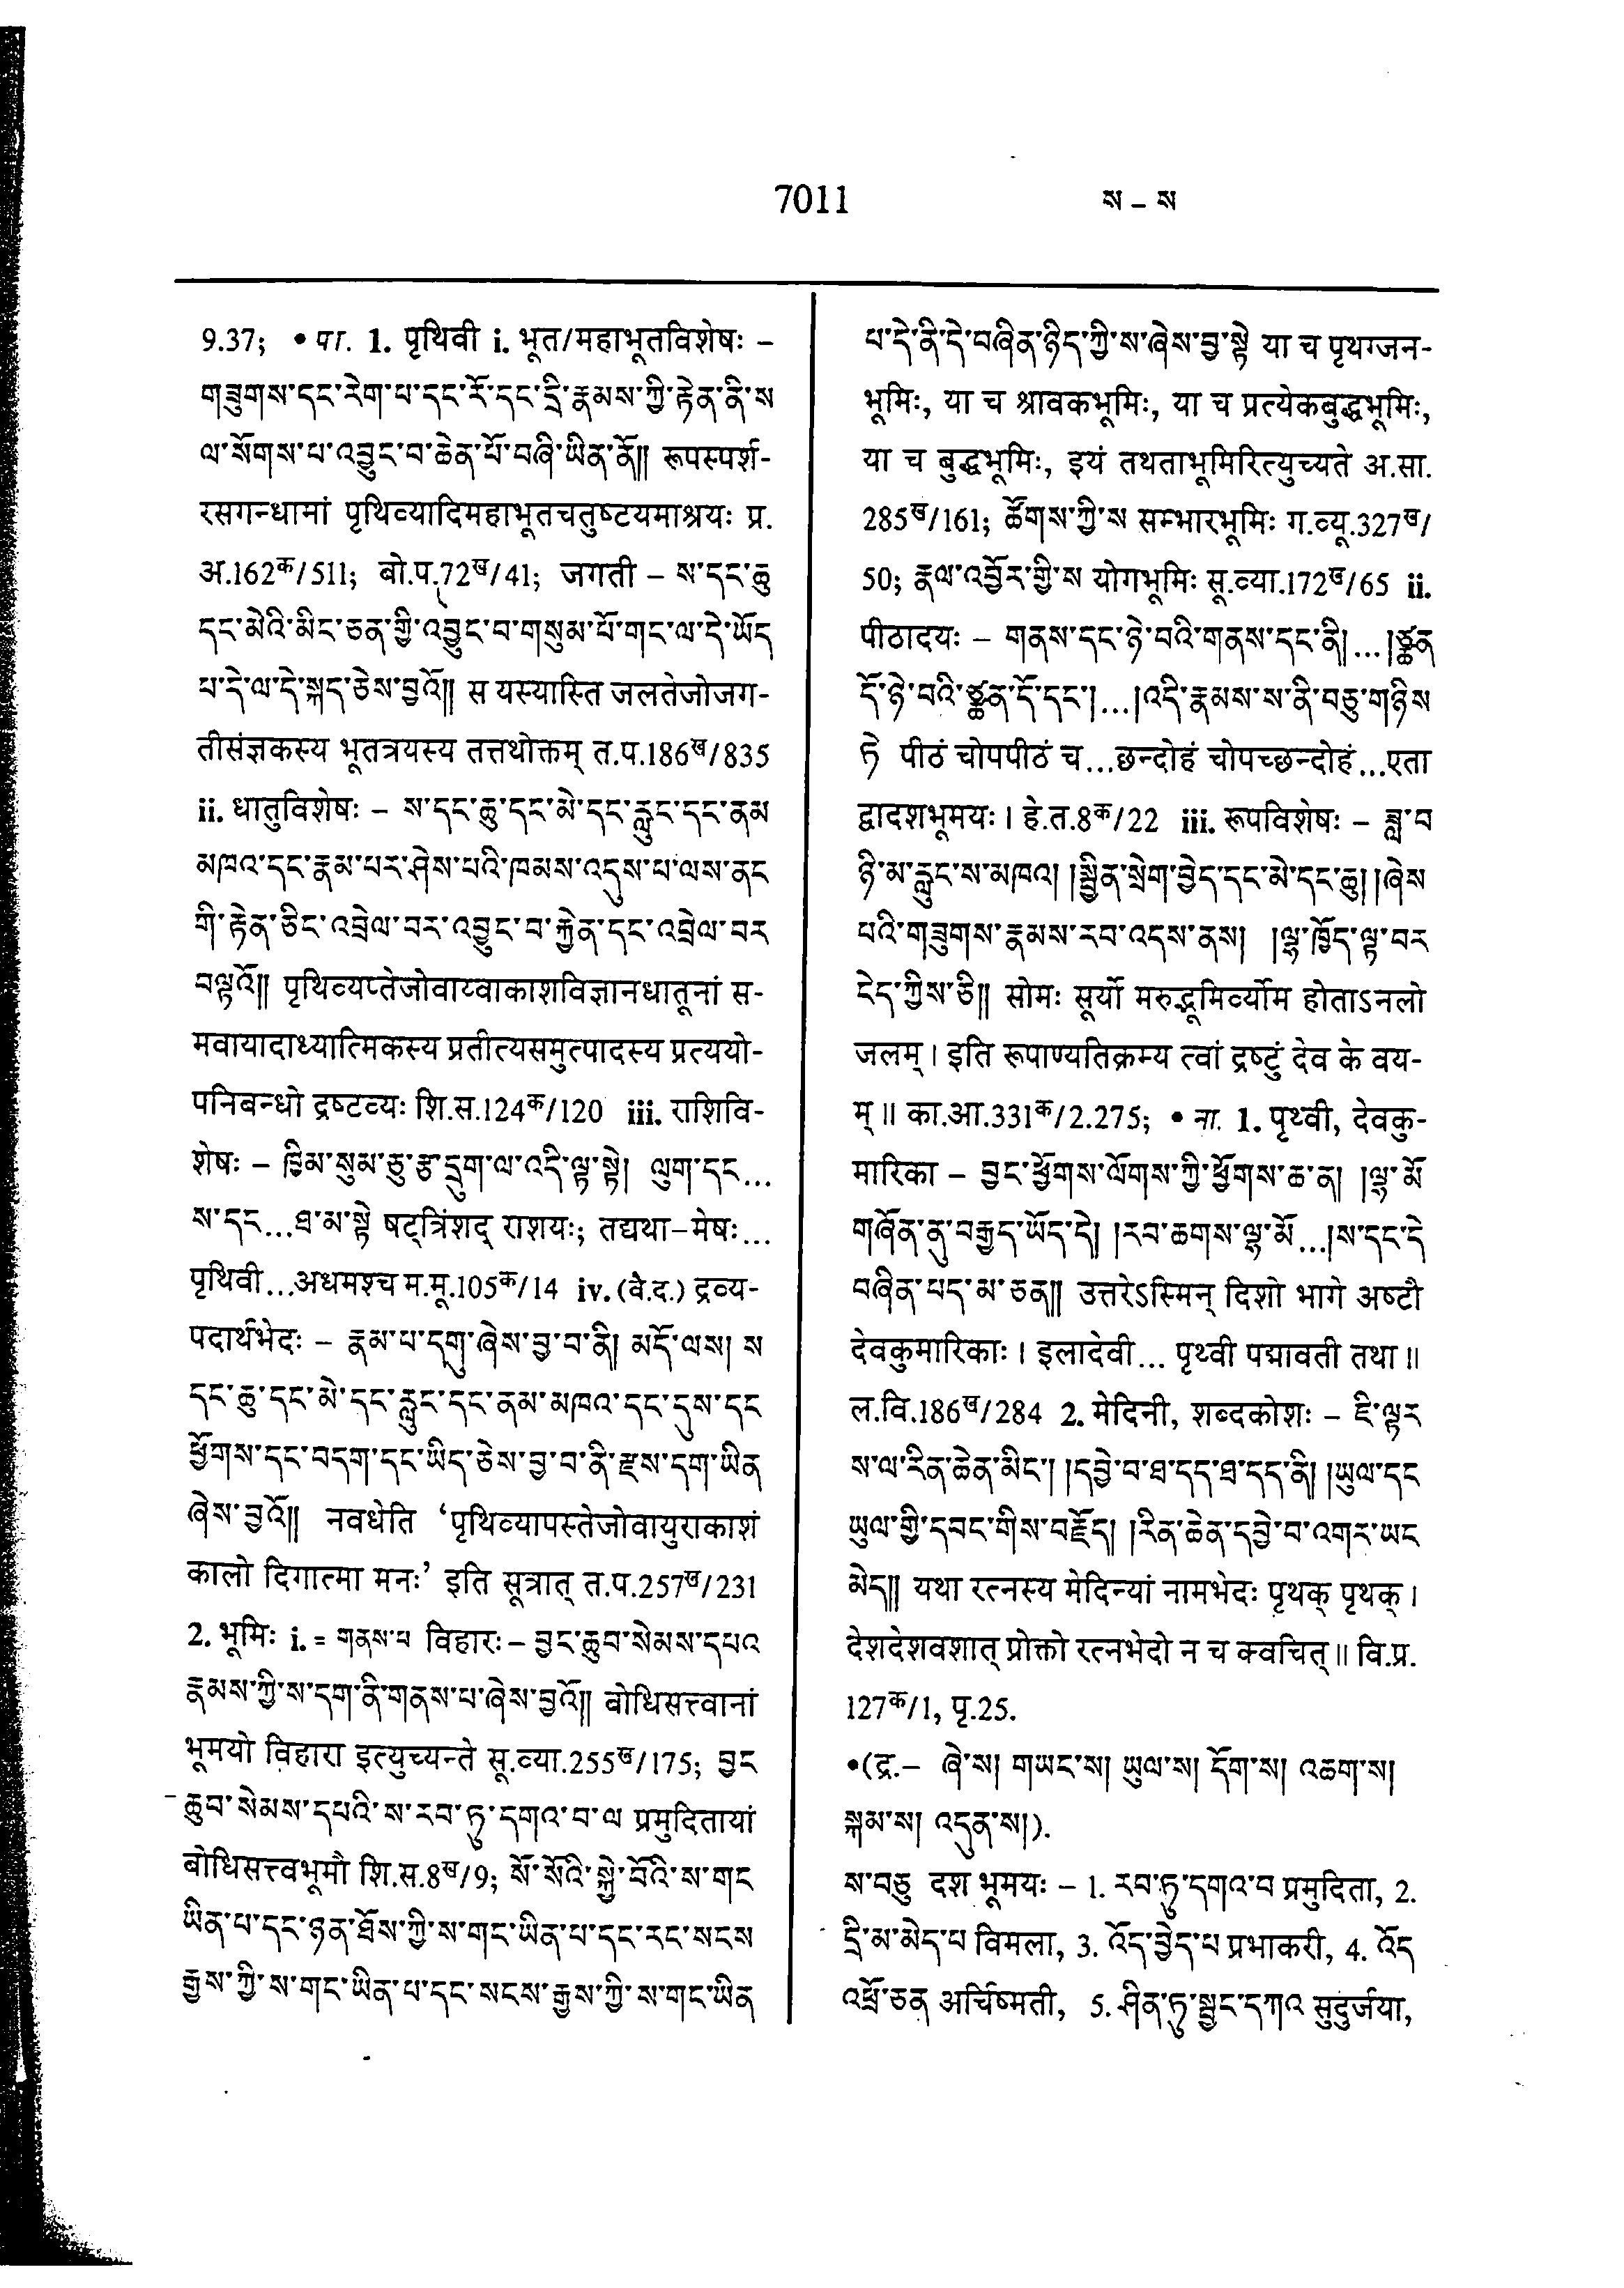 7011
ས – ས
9.37; • पा. 1. पृथिवी i. भूत/महाभूतविशेषः –
གཟུགས་དང་རེག་པ་དང་རོ་དང་དྲི་རྣམས་ཀྱི་རྟེན་ནི་ས
ལ་སོགས་པ་འབྱུང་བ་ཆེན་པོ་བཞི་ཡིན་ནོ༎ रूपस्पर्श-
रसगन्धामां पृथिव्यादिमहाभूतचतुष्टयमाश्रयः प्र.
अ.162क/511; बो.प.72ख/41; जगती – ས་དང་ཆུ
དང་མེའི་མིང་ཅན་གྱི་འབྱུང་བ་གསུམ་པོ་གང་ལ་དེ་ཡོད
པ་དེ་ལ་དེ་སྐད་ཅེས་བྱའོ༎ स यस्यास्ति जलतेजोजग-
तीसंज्ञकस्य भूतत्रयस्य तत्तथोक्तम् त.प.186ख/835
ii. धातुविशेषः – ས་དང་ཆུ་དང་མེ་དང་རླུང་དང་ནམ
མཁའ་དང་རྣམ་པར་ཤེས་པའི་ཁམས་འདུས་པ་ལས་ནང
གི་རྟེན་ཅིང་འབྲེལ་བར་འབྱུང་བ་རྐྱེན་དང་འབྲེལ་བར
བལྟའོ༎ पृथिव्यप्तेजोवाय्वाकाशविज्ञानधातूनां स-
मवायादाध्यात्मिकस्य प्रतीत्यसमुत्पादस्य प्रत्ययो-
पनिबन्धो द्रष्टव्यः शि.स.124क/120 iii. राशिवि-
शेषः – ཁྱིམ་སུམ་ཅུ་རྩ་དྲུག་ལ་འདི་ལྟ་སྟེ། ལུག་དང...
ས་དང...ཐ་མ་སྟེ षट्त्रिंशद् राशयः; तद्यथा–मेषः...
पृथिवी...अधमश्च म.मू.105क/14 iv. (वै.द.) द्रव्य-
पदार्थभेदः – རྣམ་པ་དགུ་ཞེས་བྱ་བ་ནི། མདོ་ལས། ས
དང་ཆུ་དང་མེ་དང་རླུང་དང་ནམ་མཁའ་དང་དུས་དང
ཕྱོགས་དང་བདག་དང་ཡིད་ཅེས་བྱ་བ་ནི་རྫས་དག་ཡིན
ཞེས་བྱའོ༎ नवधेति ‘पृथिव्यापस्तेजोवायुराकाशं
कालो दिगात्मा मनः’ इति सूत्रात् त.प.257ख/231
2. भूमिः i. = གནས་པ विहारः – བྱང་ཆུབ་སེམས་དཔའ
རྣམས་ཀྱི་ས་དག་ནི་གནས་པ་ཞེས་བྱའོ༎ बोधिसत्त्वानां
भूमयो विहारा इत्युच्यन्ते सू.व्या.255ख/175; བྱང
ཆུབ་སེམས་དཔའི་ས་རབ་ཏུ་དགའ་བ་ལ प्रमुदितायां
बोधिसत्त्वभूमौ शि.स.8ख/9; སོ་སོའི་སྐྱེ་བོའི་ས་གང
ཡིན་པ་དང་ཉན་ཐོས་ཀྱི་ས་གང་ཡིན་པ་དང་རང་སངས
རྒྱས་ཀྱི་ས་གང་ཡིན་པ་དང་སངས་རྒྱས་ཀྱི་ས་གང་ཡིན
པ་དེ་ནི་དེ་བཞིན་ཉིད་ཀྱི་ས་ཞེས་བྱ་སྟེ या च पृथग्जन-
भूमिः, या च श्रावकभूमिः, या च प्रत्येकबुद्धभूमिः,
या च बुद्धभूमिः, इयं तथताभूमिरित्युच्यते अ.सा.
285ख/161; ཚོགས་ཀྱི་ས सम्भारभूमिः ग.व्यू.327ख/
50; རྣལ་འབྱོར་གྱི་ས योगभूमिः सू.व्या.172ख/65 ii.
पीठादयः – གནས་དང་ཉེ་བའི་གནས་དང་ནི།...།ཙྪན
དོ་ཉེ་བའི་ཙྪན་དོ་དང་།...།འདི་རྣམས་ས་ནི་བཅུ་གཉིས
ཏེ पीठं चोपपीठं च...छन्दोहं चोपच्छन्दोहं...एता
द्वादशभूमयः। हे.त.8क/22 iii. रूपविशेषः – ཟླ་བ
ཉི་མ་རླུང་ས་མཁའ། །སྦྱིན་སྲེག་བྱེད་དང་མེ་དང་ཆུ། །ཞེས
པའི་གཟུགས་རྣམས་རབ་འདས་ནས། །ལྷ་ཁྱོད་ལྟ་བར
ངེད་ཀྱིས་ཅི༎ सोमः सूर्यो मरुद्भूमिर्व्योम होताऽनलो
जलम्। इति रूपाण्यतिक्रम्य त्वां द्रष्टुं देव के वय-
म्॥ का.आ.331क/2.275; • ना. 1. पृथ्वी, देवकु-
मारिका – བྱང་ཕྱོགས་ལོགས་ཀྱི་ཕྱོགས་ཆ་ན། །ལྷ་མོ
གཞོན་ནུ་བརྒྱད་ཡོད་དེ། །རབ་ཆགས་ལྷ་མོ...།ས་དང་དེ
བཞིན་པད་མ་ཅན༎ उत्तरेऽस्मिन् दिशो भागे अष्टौ
देवकुमारिकाः। इलादेवी... पृथ्वी पद्मावती तथा॥
ल.वि.186ख/284 2. मेदिनी, शब्दकोशः – ཇི་ལྟར
ས་ལ་རིན་ཆེན་མིང་། །དབྱེ་བ་ཐ་དད་ཐ་དད་ནི། །ཡུལ་དང
ཡུལ་གྱི་དབང་གིས་བརྗོད། །རིན་ཆེན་དབྱེ་བ་འགར་ཡང
མེད༎ यथा रत्नस्य मेदिन्यां नामभेदः पृथक् पृथक्।
देशदेशवशात् प्रोक्तो रत्नभेदो न च क्वचित्॥ वि.प्र.
127क/1, पृ.25.
•(द्र.– ཞེ་ས། གཡང་ས། ཡུལ་ས། དོག་ས། འཆག་ས།
སྐམ་ས། འདུན་ས།).
ས་བཅུ दश भूमयः – 1. རབ་ཏུ་དགའ་བ प्रमुदिता, 2.
དྲི་མ་མེད་པ विमला, 3. འོད་བྱེད་པ प्रभाकरी, 4. འོད
འཕྲོ་ཅན अर्चिष्मती, 5. ཤིན་ཏུ་སྦྱང་དཀའ सुदुर्जया,